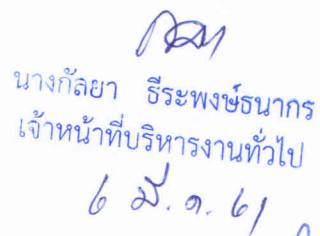 นางกัลยา ธีระพงษ์ธนากร
เจ้าหน้าที่บริหารงานทั่วไป
๖ มี.ค. ๖๑